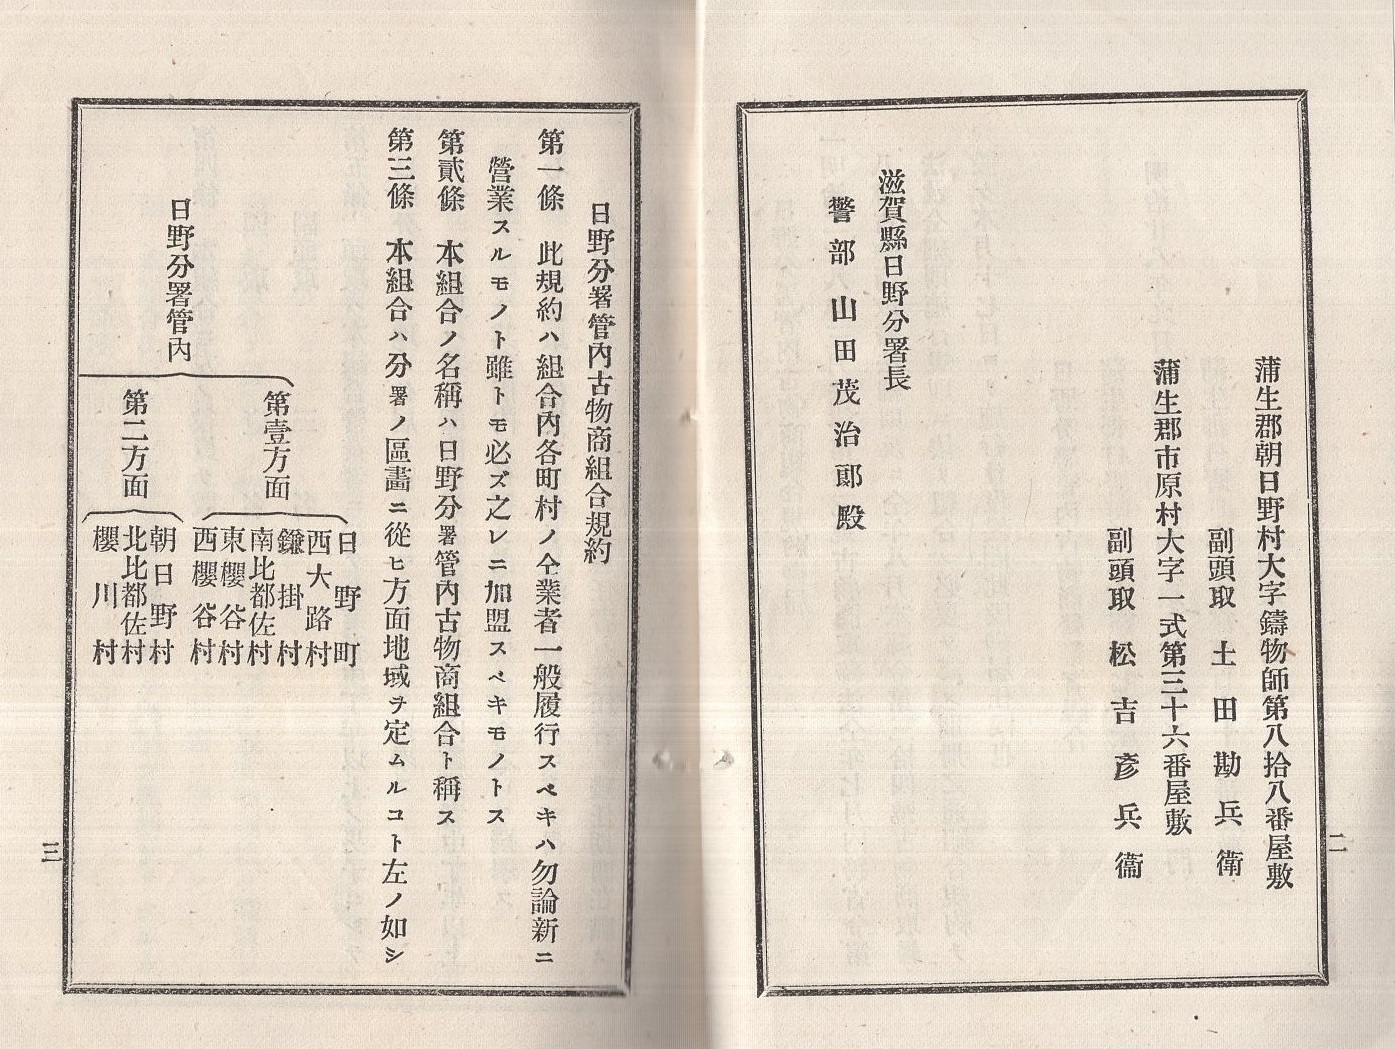 蒲生郡朝日野村大字鑄物師第八拾八番屋敷
副頭取　土田勘兵衛
蒲生郡市原村大字一式第三十六番屋敷
副頭取　松吉彥兵衞
滋賀縣日野分署長
警部　山田茂治郞殿
二
日野分署管內古物商組合規約
第一條　此規約ハ組合內各町村ノ仝業者一般履行スベキハ勿論新ニ
營業スルモノト雖トモ必ズ之レニ加盟スベキモノトス
第貳條　本組合ノ名稱ハ日野分署管內古物商組合ト稱ス
第三條　本組合ハ分署ノ區畵ニ從ヒ方面地域ヲ定ムルコト左ノ如シ
日野分署管內
第壹方面
日野町
西大路村
鎌掛村
南比都佐村
東櫻谷村
西櫻谷村
第二方面
朝日野村
北比都佐村
櫻川村
三